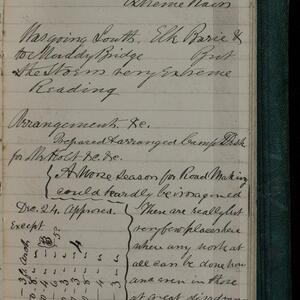 Extreme Rain
Was going South. Elk Barie &
to Muddy Bridge But
the Storm very Extreme
Reading
Arrangements &c.
Prepared & arranged Camp Desk
for Mr Holt &c &c.
A Worse Season for Road Making
could hardly be imagined
Dec. 24. Approves. There are really but
Except very few places where
where any work at
all can be done now
and even in these
at great disadvan